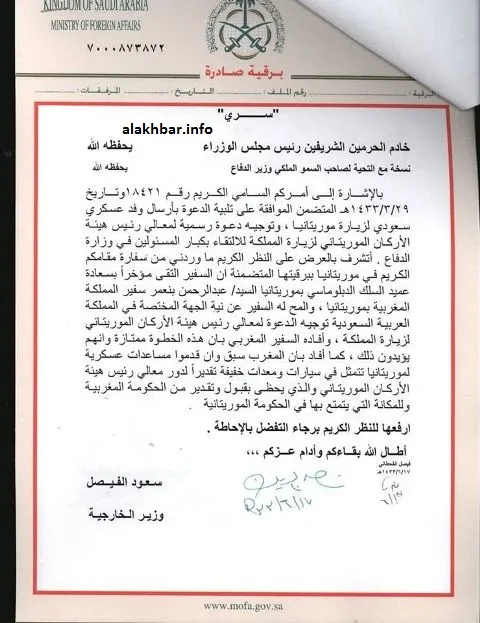 KINGDOM OF SAUDI ARABIA
MINISTRY OF FOREIGN AFFAIRS
٧٠٠٠٨٧٣٨٧٢
برقية صادرة
البرقية : رقم الملف : التاريخ : المرفقات :
"سـري"
alakhbar.info
خادم الحرمين الشريفين رئيس مجلس الوزراء يحفظه الله
نسخة مع التحية لصاحب السمو الملكي وزير الدفاع يحفظه الله
بالإشارة إلى أمركم السامي الكريم رقم ١٨٤٢١ وتاريخ
١٤٣٣/٣/٢٩هـ المتضمن الموافقة على تلبية الدعوة بأرسال وفد عسكري
سعودي لزيارة موريتانيا ، وتوجيه دعوة رسمية لمعالي رئيس هيئة
الأركان الموريتاني لزيارة المملكة للالتقاء بكبار المسئولين في وزارة
الدفاع . أتشرف بالعرض على النظر الكريم ما وردني من سفارة مقامكم
الكريم في موريتانيا ببرقيتها المتضمنة ان السفير التقى مؤخراً بسعادة
عميد السلك الدبلوماسي بموريتانيا السيد/ عبدالرحمن بنعمر سفير المملكة
المغربية بموريتانيا ، والمح له السفير عن نية الجهة المختصة في المملكة
العربية السعودية توجيه الدعوة لمعالي رئيس هيئة الأركان الموريتاني
لزيارة المملكة ، وأفاده السفير المغربي بان هذه الخطوة ممتازة وانهم
يؤيدون ذلك ، كما أفاد بان المغرب سبق وان قدموا مساعدات عسكرية
لموريتانيا تتمثل في سيارات ومعدات خفيفة تقديراً لدور معالي رئيس هيئة
الأركان الموريتاني والذي يحظى بقبول وتقدير من الحكومة المغربية
وللمكانة التي يتمتع بها في الحكومة الموريتانية .
ارفعها للنظر الكريم برجاء التفضل بالإحاطة .
أطال الله بقاءكم وأدام عزكم ،،،
فيصل القحطاني
١٤٣٣/٦/١٧هـ
سعود الفيصل
وزير الخارجية
www.mofa.gov.sa